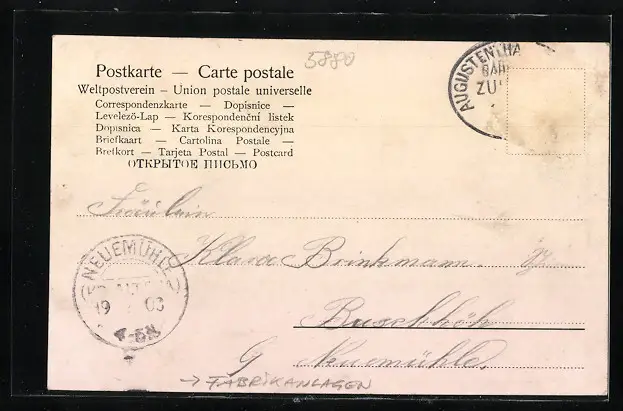 5880
Postkarte — Carte postale
Weltpostverein – Union postale universelle
Correspondenzkarte — Dopisnice —
Levelező-Lap — Korespondenční listek
Dopisnica — Karta Korespondencyjna
Briefkaart — Cartolina Postale —
Brefkort — Tarjeta Postal — Postcard
ОТКРЫТОЕ ПИСЬМО
AUGUSTENTHA
BAH
ZU
Fräulein
Klara Brinkmann.
Buschhöh
Neuemühle.
NEUEMÜHLE
19 03
→ FABRIKANLAGEN